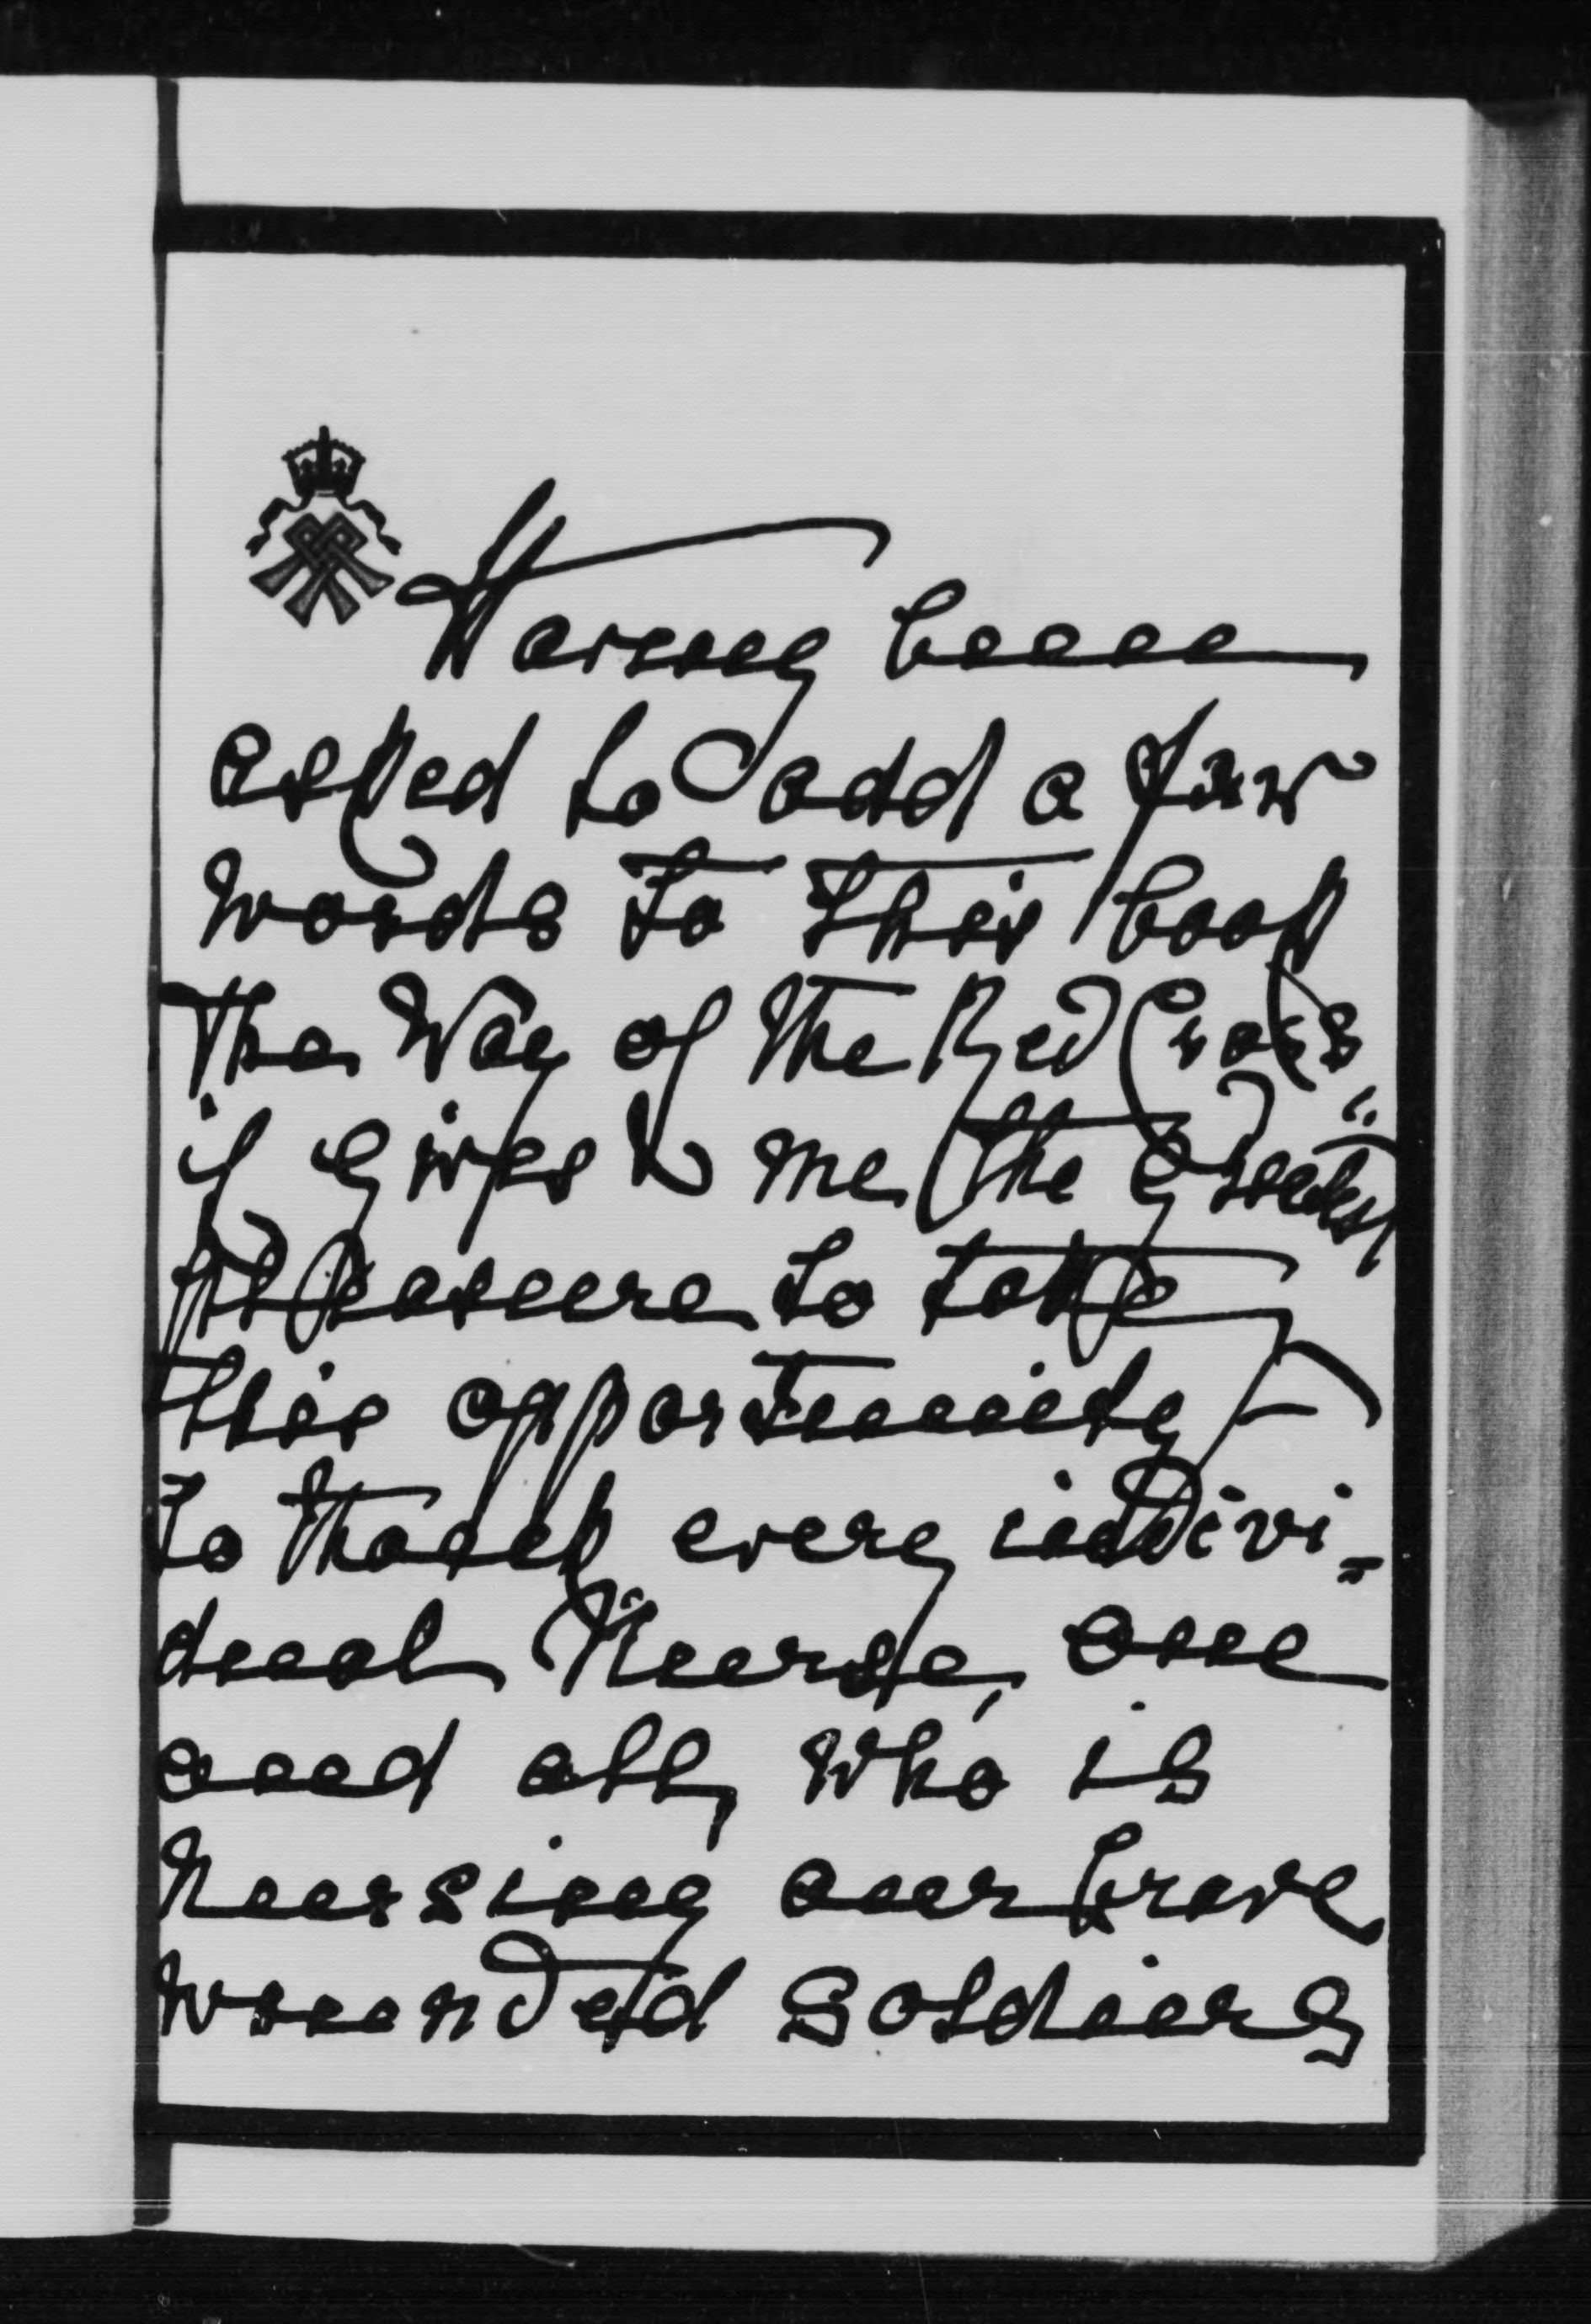 Having been
asked to add a few
words to this book
The Way of the Red Cross"
it gives to me the greatest
pleasure to take
this opportunity
to thank every indivi-
dual Nurse, one
and all, who is
Nursing our brave
wounded Soldiers